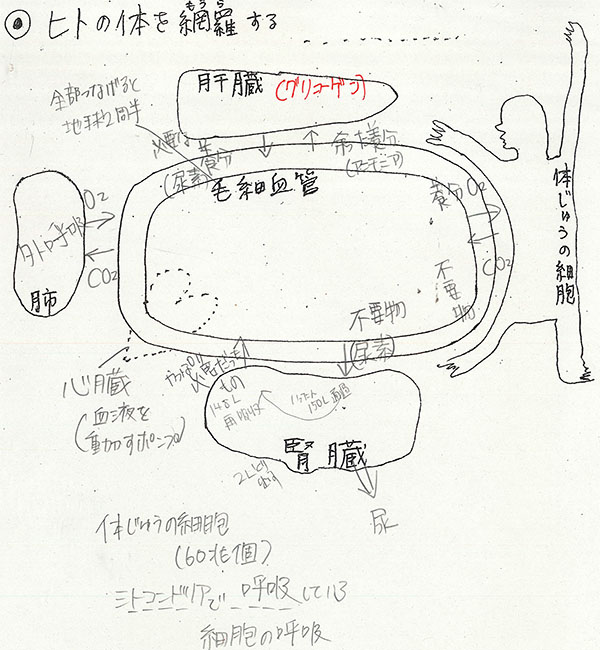 ヒトの体を網羅する
もうら
全部つなげると
地球2周半
肝臓(グリコーゲン)
必要な
養分
(尿素)
余った養分
(アンモニア)
毛細血管
O2
外呼吸
CO2
肺
養分 O2
CO2
不要物
体じゅうの細胞
心臓
(血液を
動かすポンプ)
やっぱり
必要だった
もの
148L
再吸収
不要物
(尿素)
いったん
150L
腎臓
2L
尿
体じゅうの細胞
(60兆個)
ミトコンドリアで呼吸している
細胞の呼吸